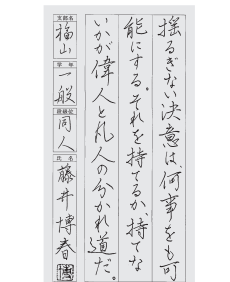 揺るぎない決意は、何事をも可
能にする。それを持てるか、持てな
いかが偉人と凡人の分かれ道だ。
支部名
福山
学年
一般
段級位
同人
氏名
藤井博春
博